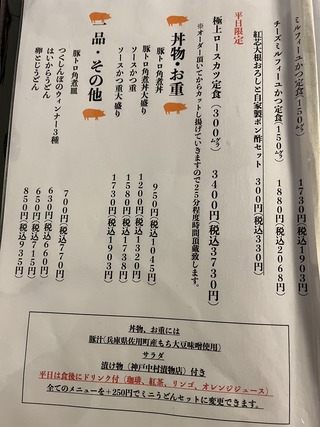 ミルフィーユかつ定食(150㌘) 1730円(税込1903円)
チーズミルフィーユかつ定食(150㌘) 1880円(税込2068円)
紅芯大根おろしと自家製ポン酢セット 300円(税込330円)
平日限定
極上ロースカツ定食(300㌘) 3400円(税込3730円)
※オーダー頂いてからカットし揚げていきますので25分程度時間頂戴致します。
丼物・お重
豚トロ角煮丼 950円(税込1045円)
豚トロ角煮丼大盛り 1200円(税込1320円)
ソースかつ重 1580円(税込1738円)
ソースかつ重大盛り 1730円(税込1903円)
一品・その他
豚トロ角煮皿 700円(税込770円)
つくしんぼのウィンナー3種 630円(税込660円)
はいからうどん 650円(税込715円)
卵とじうどん 850円(税込935円)
丼物、お重には
豚汁(兵庫県佐用町産もち大豆味噌使用)
サラダ
漬け物(神戸中村漬物店)付き
平日は食後にドリンク付(珈琲、紅茶、リンゴ、オレンジジュース)
全てのメニューを+250円でミニうどんセットに変更できます。